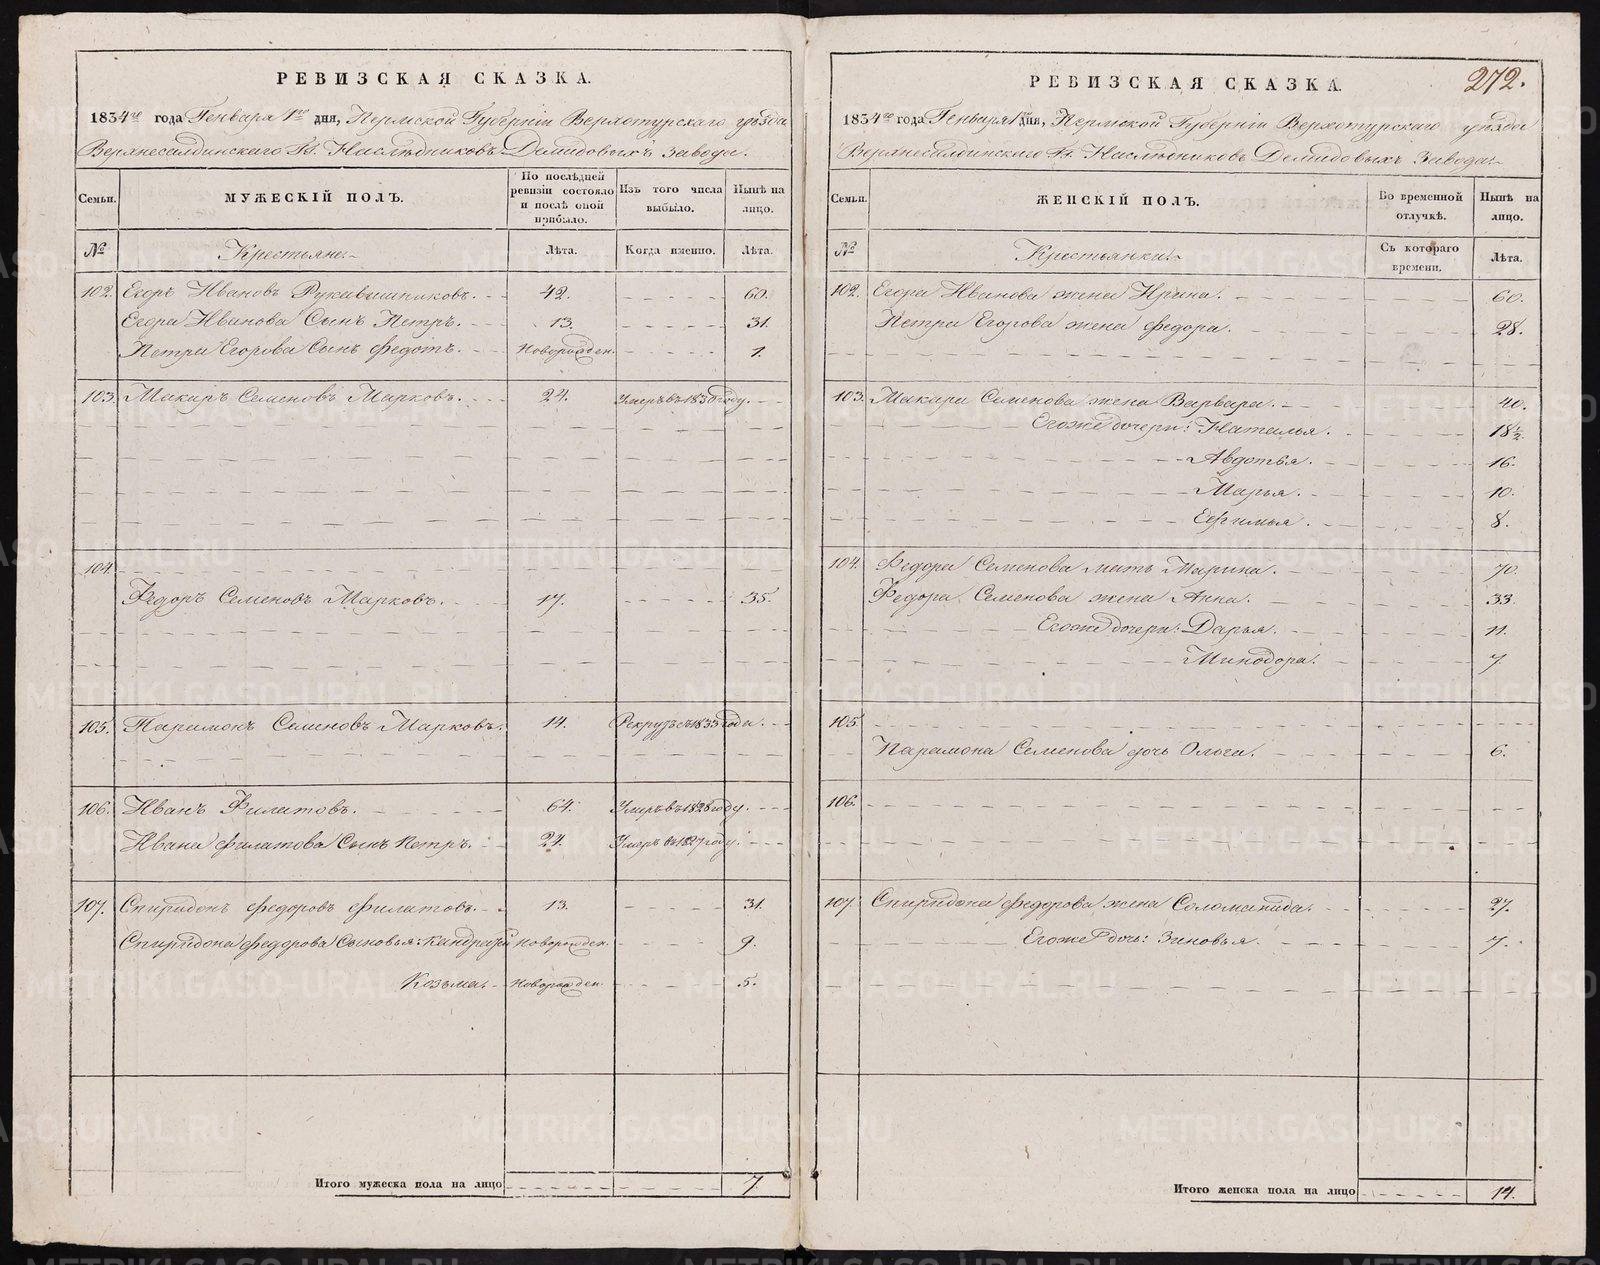 РЕВИЗСКАЯ СКАЗКА.
1834го года Генваря 1го дня, Пермской Губернiи Верхотурскаго уѣзда
Верхнесалдинскаго Гг. Наслѣдниковъ Демидовыхъ завода.
Семьи. МУЖЕСКІЙ ПОЛЪ. По послѣдней ревизіи состояло и послѣ оной прибыло. Изъ того числа выбыло. Нынѣ на лицо.
№ Крестьяне Лѣта. Когда именно. Лѣта.
102. Егоръ Ивановъ Рукавишниковъ. 42. 60.
Егора Иванова Сынъ Петръ. 13. 31.
Петра Егорова Сынъ Федотъ. Новорожден. 1.
103. Макаръ Семеновъ Марковъ. 24. Умеръ въ 1830 году.
104.
Федоръ Семеновъ Марковъ. 17. 35.
105. Парамонъ Семеновъ Марковъ. 14. Рекрутъ съ 1833 года.
106. Иванъ Филатовъ. 64. Умеръ въ 1828 году.
Ивана филатова Сынъ Петръ. 24. Умеръ въ 1827 году.
107. Спиридонъ федоровъ филатовъ. 13. 31.
Спиридона федорова Сыновья: Кандратій Новорожден. 9.
Козьма. Новорожден. 5.
Итого мужеска пола на лицо 7.
272.
РЕВИЗСКАЯ СКАЗКА.
1834го года Генваря 1го дня, Пермской Губернiи Верхотурскаго уѣзда
Верхнесалдинскаго Гг. Наслѣдниковъ Демидовыхъ завода.
Семьи. ЖЕНСКІЙ ПОЛЪ. Во временной отлучкѣ. Нынѣ на лицо.
№ Крестьянки. Съ котораго времени. Лѣта.
102. Егора Иванова жена Ирина. 60.
Петра Егорова жена федора. 28.
103. Макара Семенова жена Варвара. 40.
Егоже дочери: Наталья. 18½.
Авдотья. 16.
Марья. 10.
Ефимья. 8.
104. Федора Семенова мать Марина. 70.
Федора Семенова жена Анна. 33.
Егоже дочери: Дарья. 11.
Минодора. 7.
105.
Парамона Семенова дочь Ольга. 6.
106.
107. Спиридона федорова жена Соломанида. 27.
Егоже дочь: Зиновья. 7.
Итого женска пола на лицо 14.
METRIKI.GASO-URAL.RU